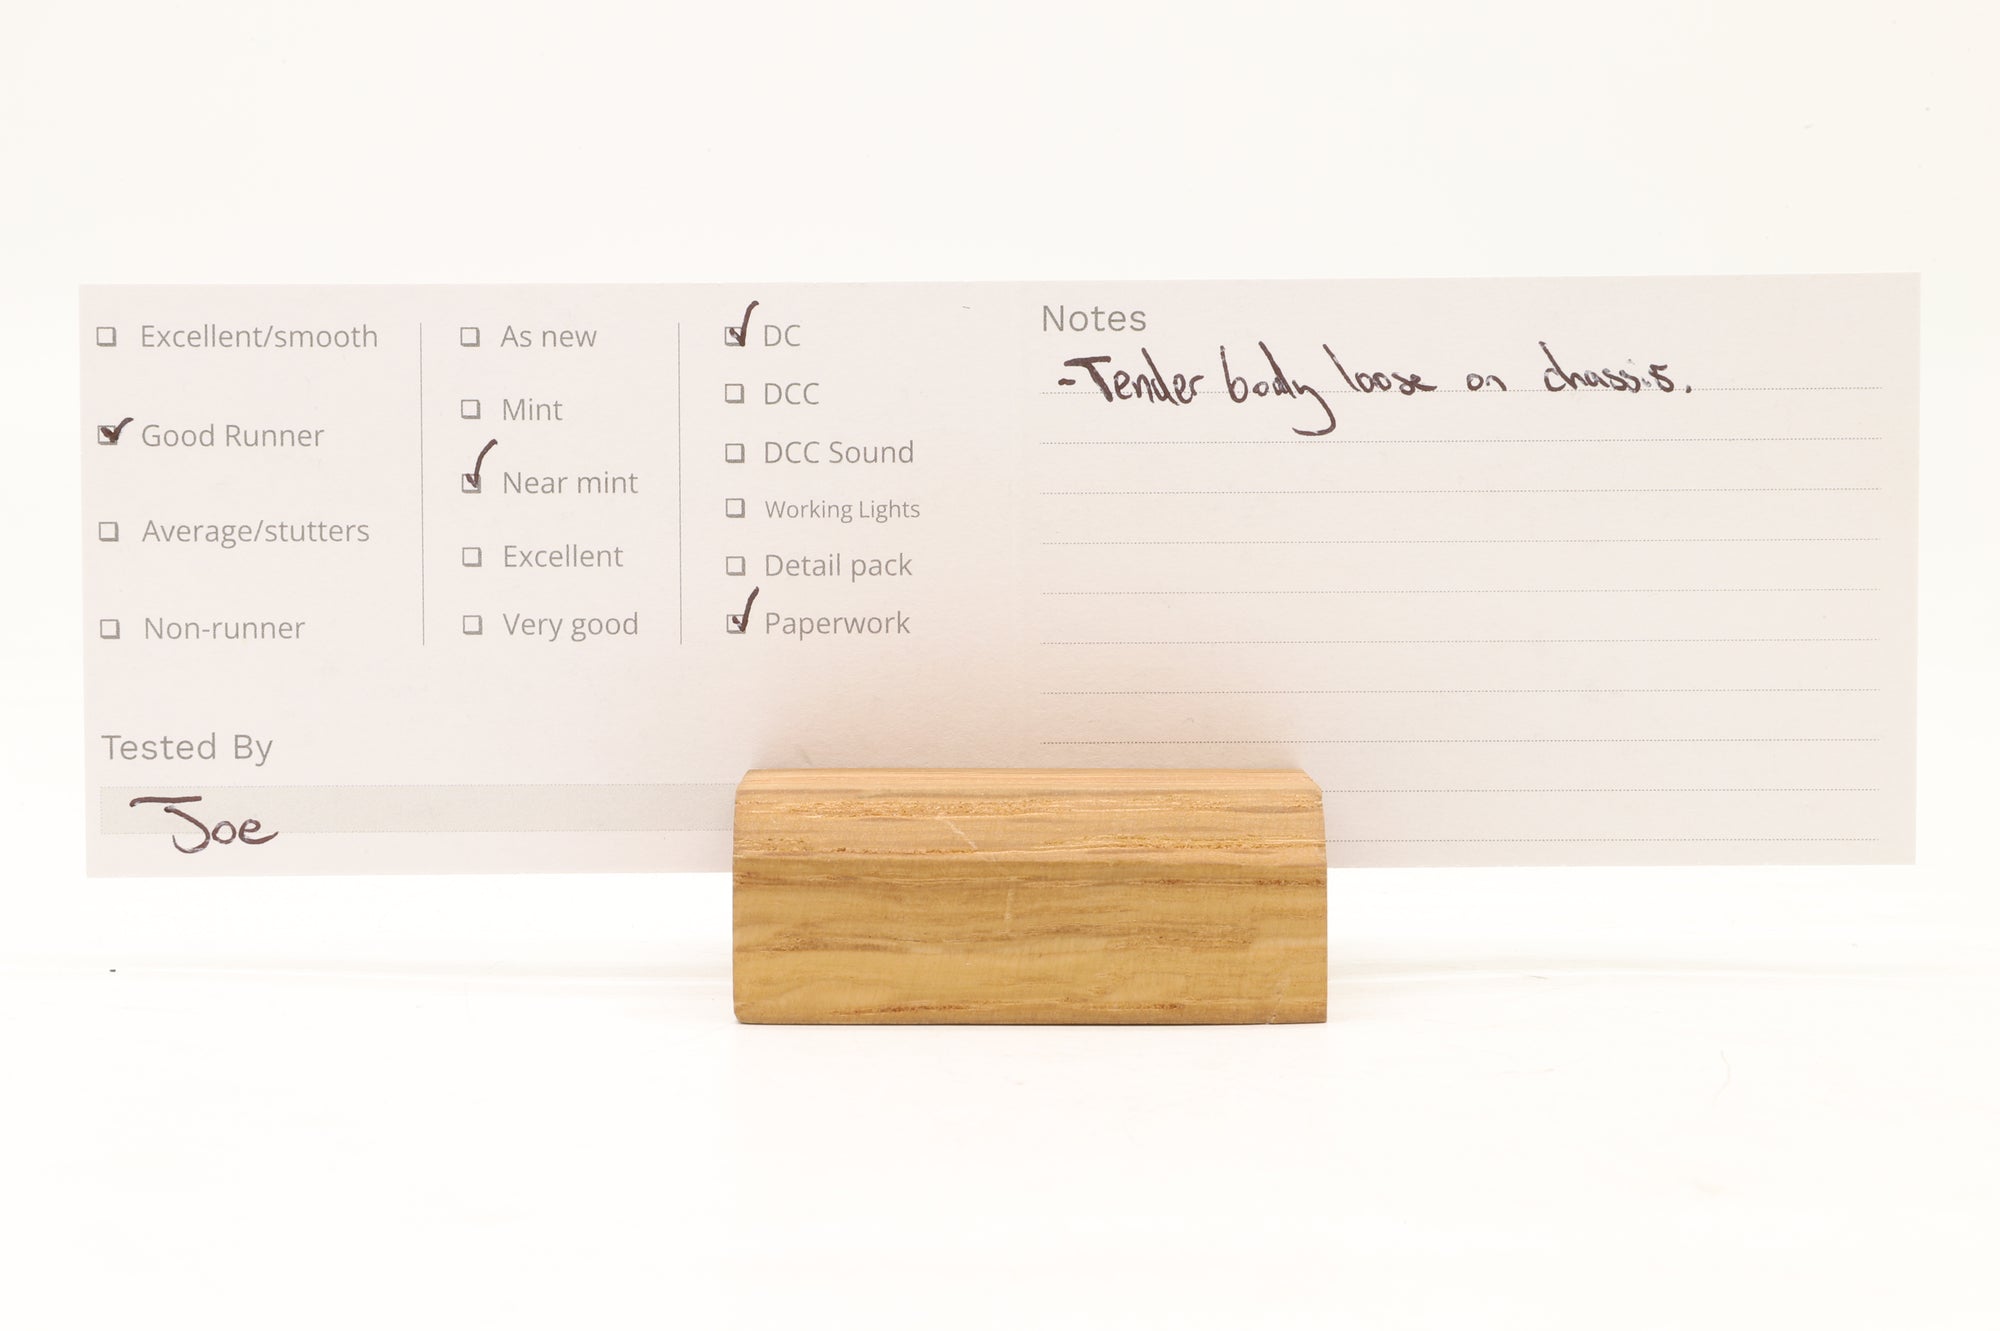 Excellent/smooth
Good Runner
Average/stutters
Non-runner
As new
Mint
Near mint
Excellent
Very good
DC
DCC
DCC Sound
Working Lights
Detail pack
Paperwork
Tested By
Joe
Notes
-Tender body loose on chassis.